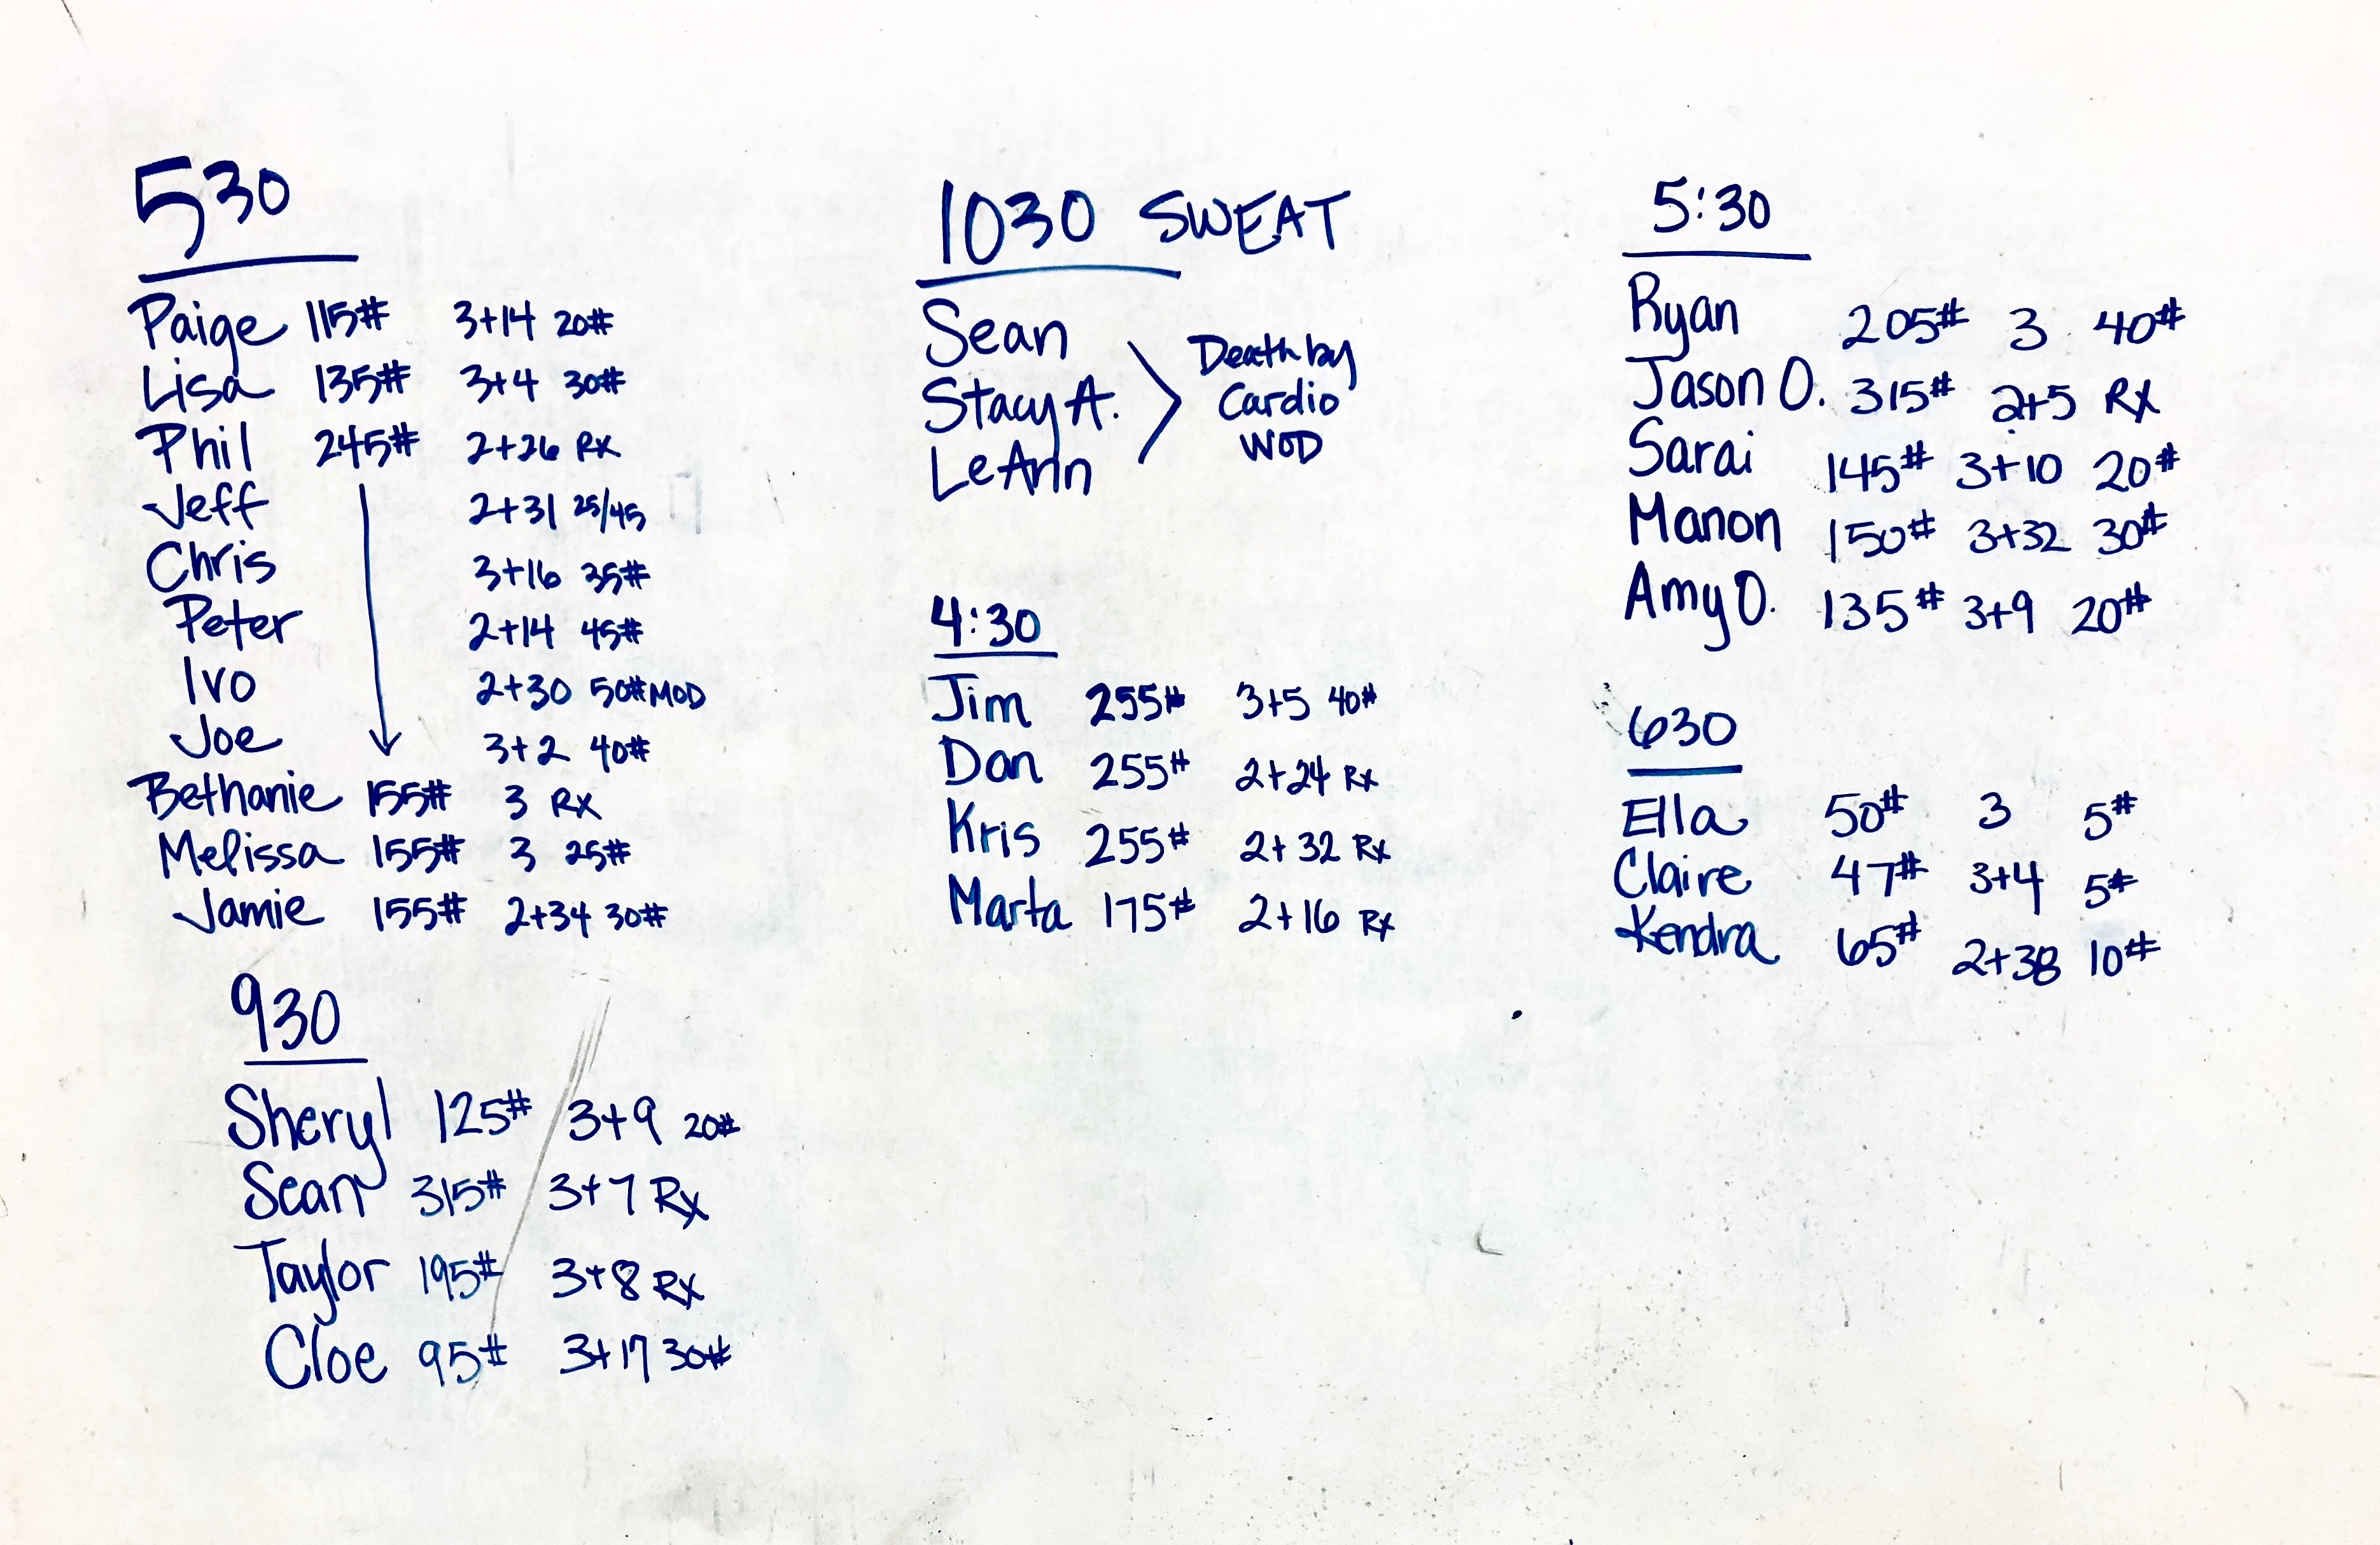 530
Paige 115# 3+14 20#
Lisa 135# 3+4 30#
Phil 245# 2+26 Rx
Jeff 2+31 25/45
Chris 3+16 35#
Peter 2+14 45#
Ivo 2+30 50# MOD
Joe 3+2 40#
Bethanie 155# 3 Rx
Melissa 155# 3 25#
Jamie 155# 2+34 30#
930
Sheryl 125# 3+9 20#
Sean 315# 3+7 Rx
Taylor 195# 3+8 Rx
Cloe 95# 3+17 30#
1030 SWEAT
Sean
Stacy A.
LeAnn
Death by
Cardio
WOD
4:30
Jim 255# 3+5 40#
Dan 255# 2+24 Rx
Kris 255# 2+32 Rx
Marta 175# 2+16 Rx
5:30
Ryan 205# 3 40#
Jason O. 315# 2+5 Rx
Sarai 145# 3+10 20#
Manon 150# 3+32 30#
Amy O. 135# 3+9 20#
630
Ella 50# 3 5#
Claire 47# 3+4 5#
Kendra 65# 2+38 10#